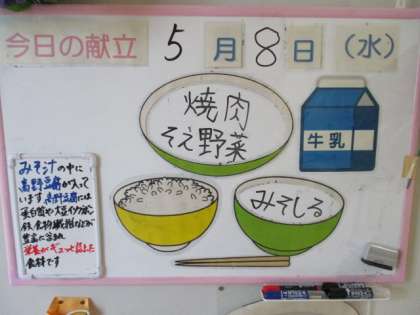 今日の献立 5月8日（水）
焼肉
そえ野菜
牛乳
みそしる
みそ汁の中に
高野豆腐が入って
います。高野豆腐には
蛋白質や大豆イソフラボン
鉄、食物繊維などが
豊富に含まれ
栄養がギュッと詰まった
食材です